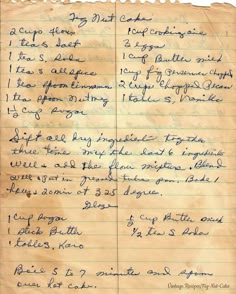 Fig Nut Cake
2 cups flour
1 tea S. Salt
1 tea S. Soda
1 tea S allspice
1 tea spoon Cinnamon
1 tea spoon Nutmeg
1 1/2 cup sugar
1 cup cooking oil
3 eggs
1 cup Butter milk
1 cup fig preserves chopped
1 cup chopped Pecan
1 table S. Vanilla
Sift all dry ingredients together
three time mix the last 6 ingredients
well & add the flour mixture. Blend
well. Bake 1
hour & 20 min at 325 degree.
1 cup sugar
1 stick Butter
1 tables, Karo
1/2 cup Butter milk
1/2 tea S Soda
Boil 5 to 7 minute and spoon
over hot cake.